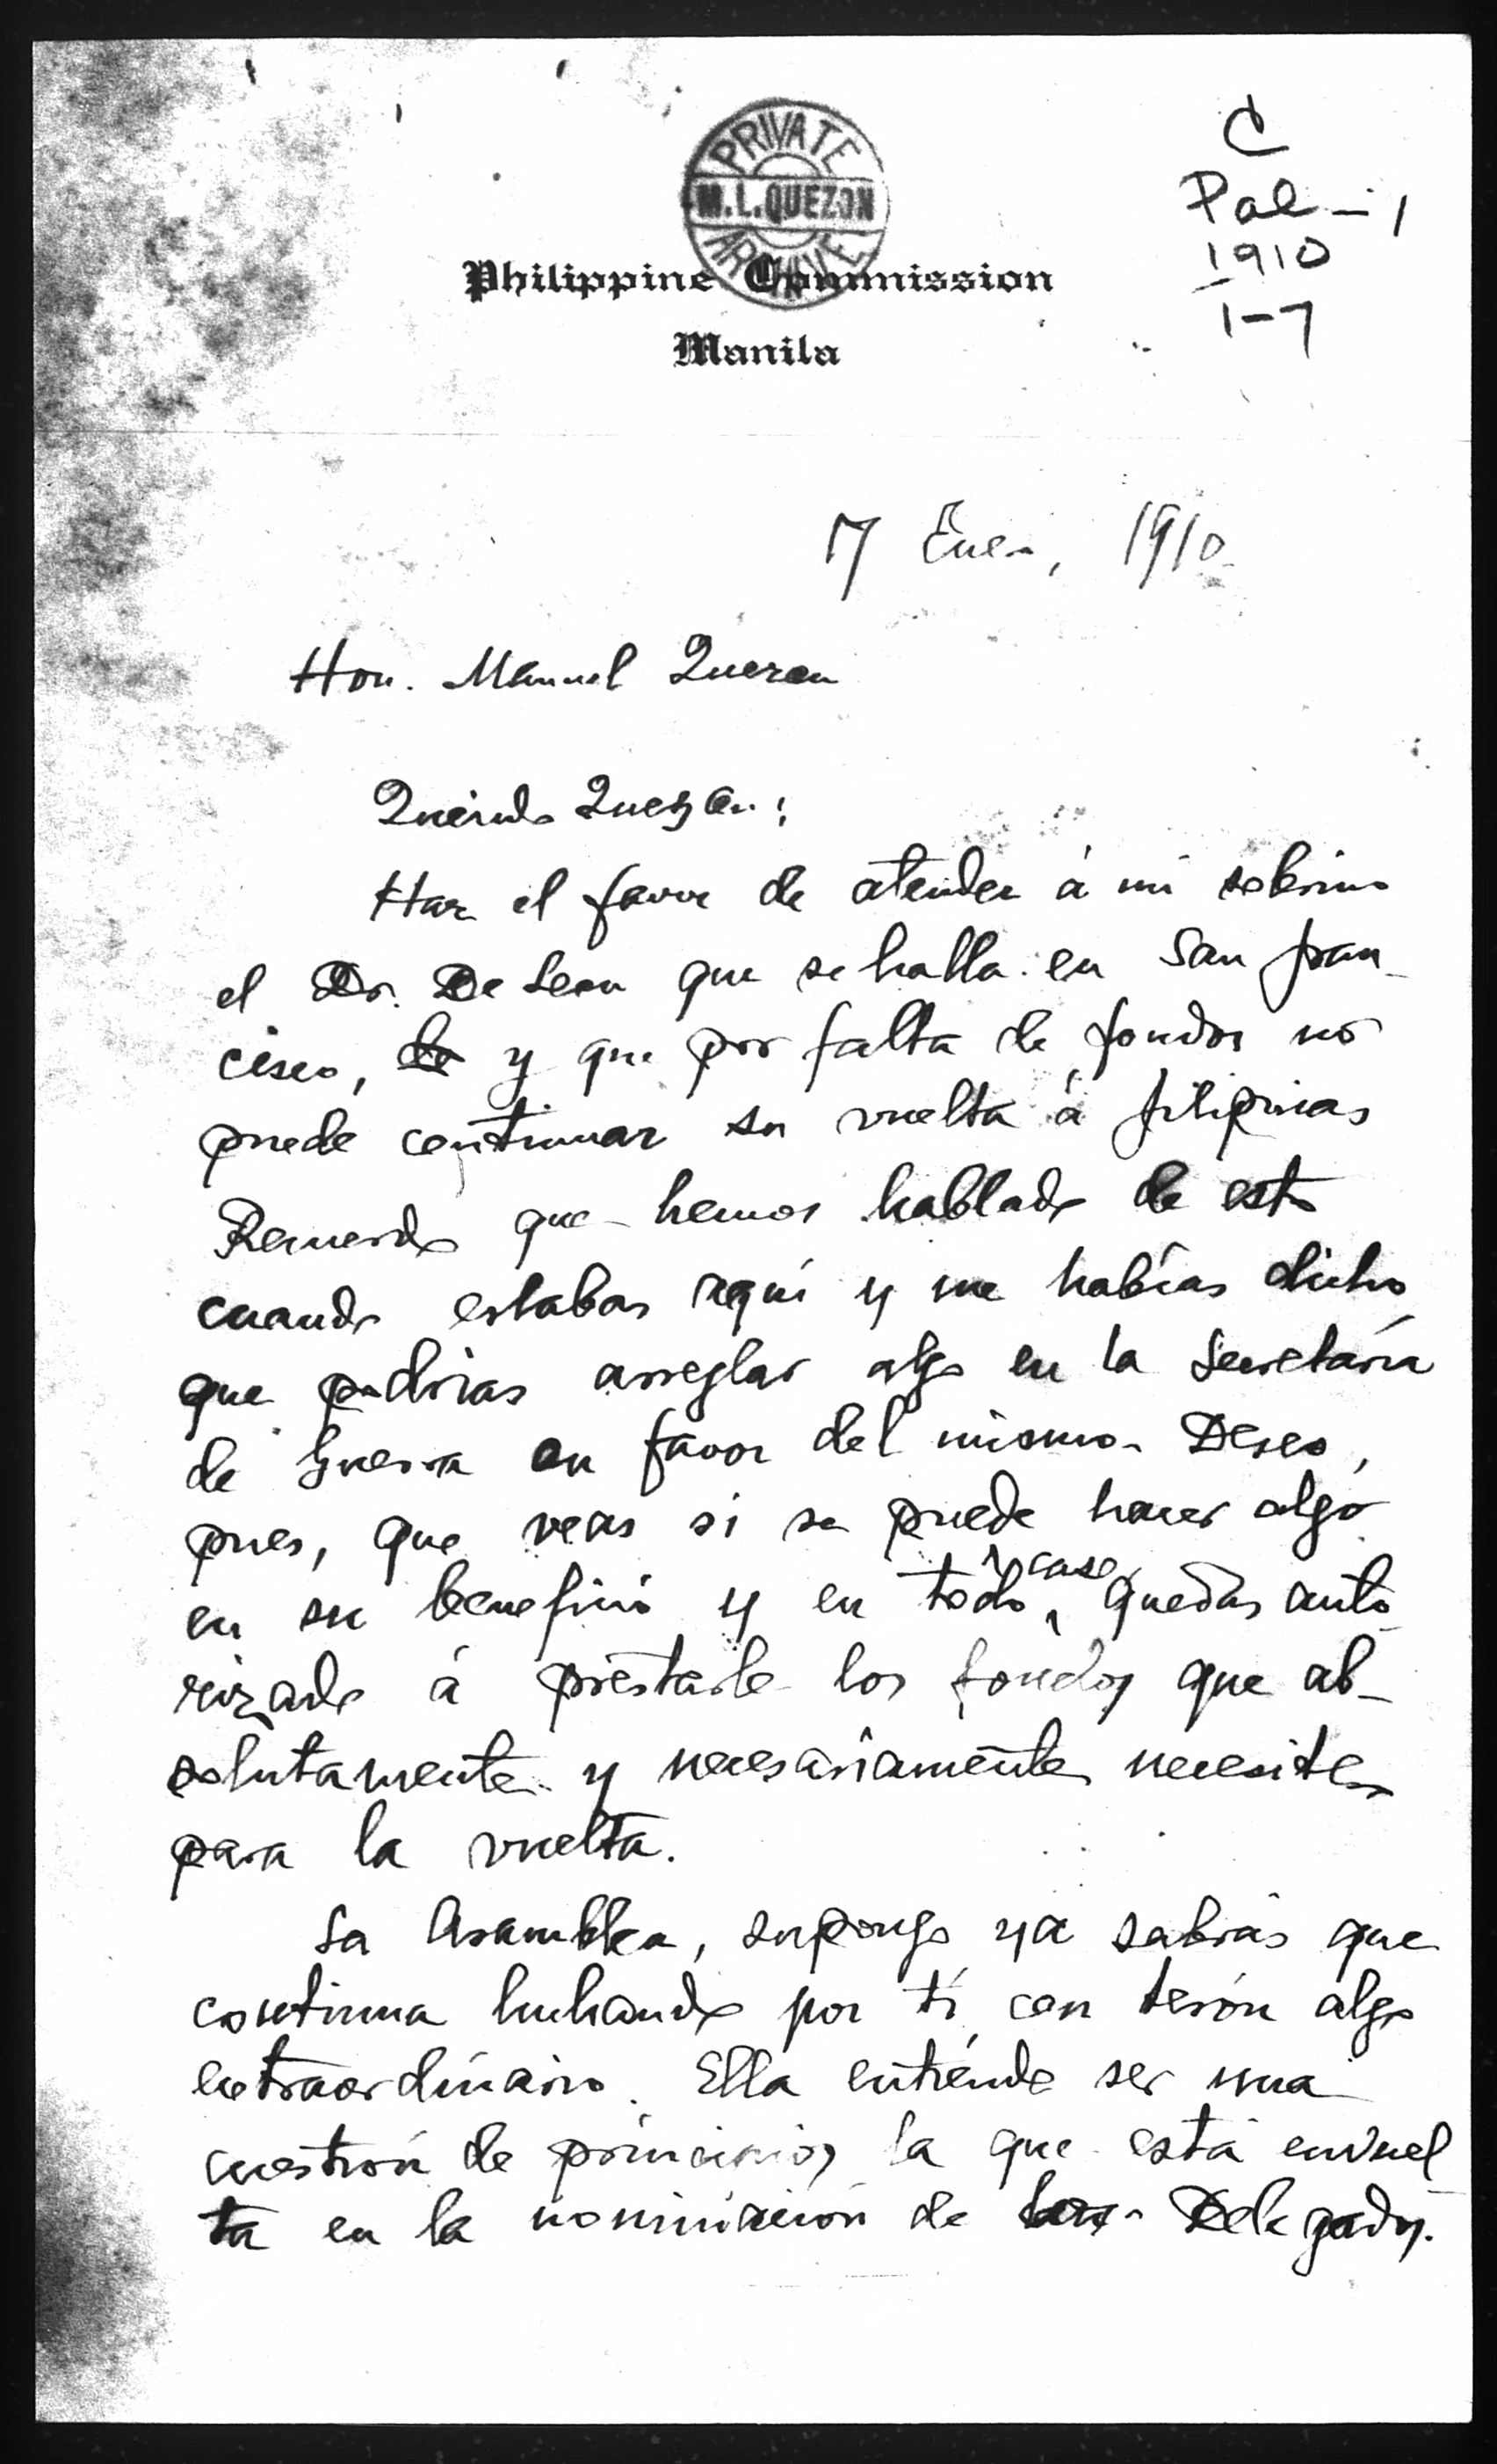 PRIVATE
M. L. QUEZON
ARCHIVE
C
Pal - 1
1910
1-7
Philippine Commission
Manila
7 Enero, 1910
Hon. Manuel Quezon
Querido Quezon:
Haz el favor de atender á mi sobrino
el Dr. De Leon que se halla en San Fran-
cisco, de y que por falta de fondos no
puede continuar su vuelta á Filipinas
Recuerdo que hemos hablado de esto
cuando estabas aquí y me habías dicho
que podrias arreglar algo en la Secretaría
de Guerra en favor del mismo. Deseo,
pues, que veas si se puede hacer algo
en su beneficio y en todo caso, quedas auto
rizado á prestarle los fondos que ab-
solutamente y necesariamente necesite
para la vuelta.
La Asamblea, supongo ya sabrás que
continua luchando por ti con tesón algo
extraordinario. Ella entiende ser una
cuestión de principios la que está envuel
ta en la nominación de los Delegados.